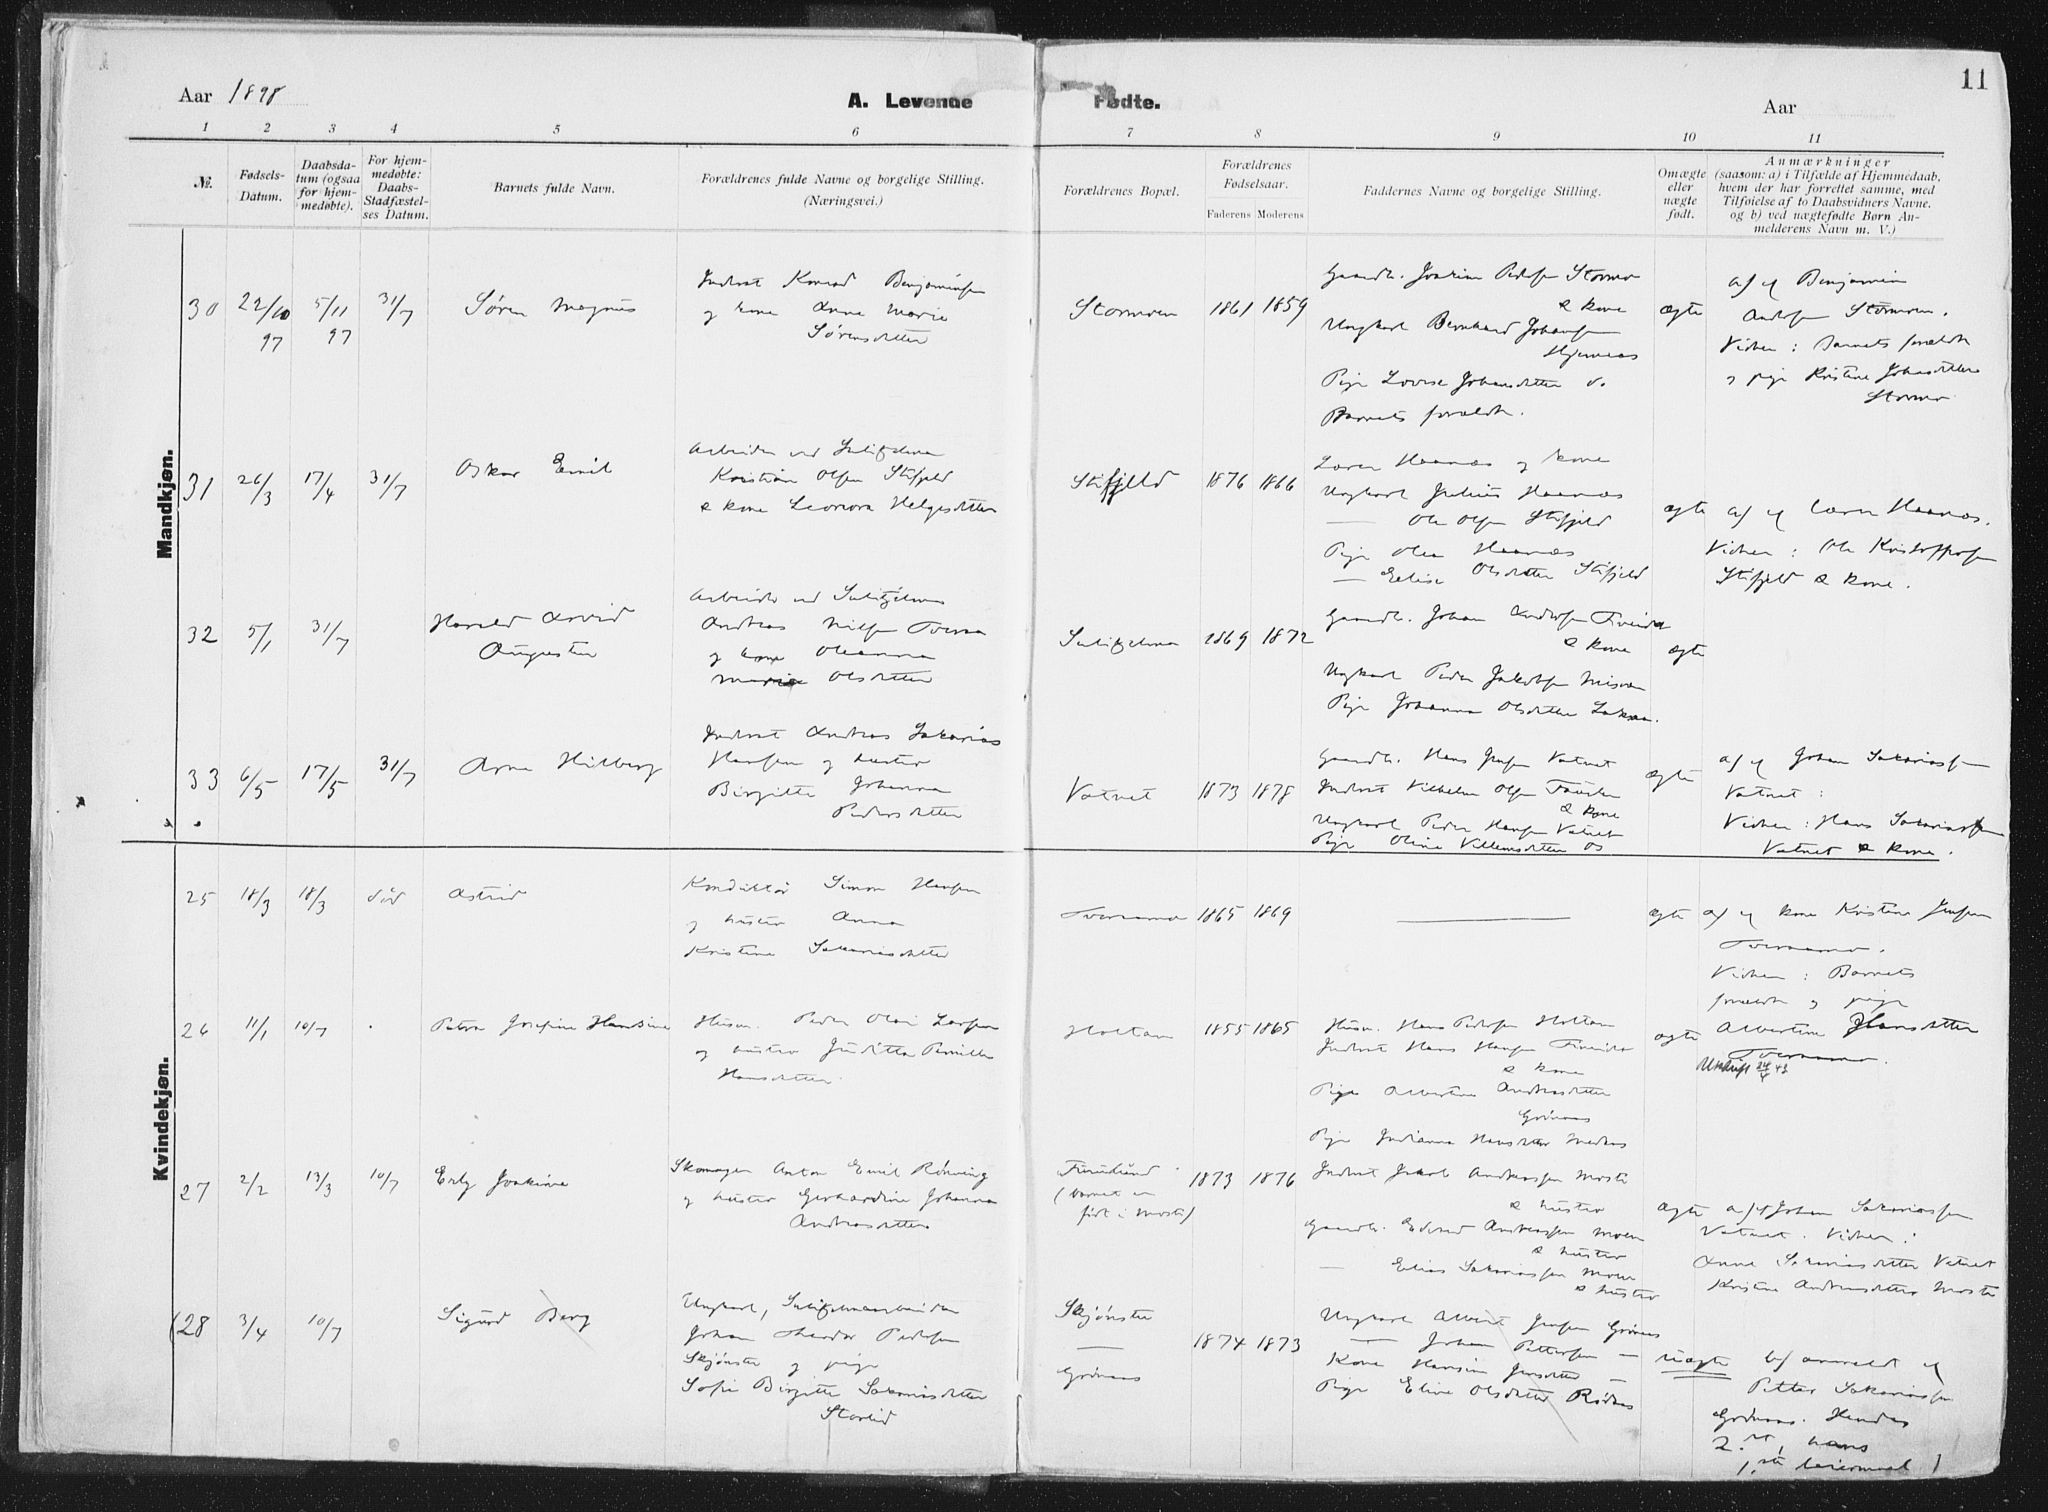 11
Aar 1898
A. Levende Fødte.
Aar
1 2 3 4 5 6 7 8 9 10 11
№.
Fødsels-
Datum.
Daabsda-
tum (ogsaa
for hjem-
medøbte).
For hjem-
medøbte:
Daabs-
Stadfæstel-
ses Datum.
Barnets fulde Navn.
Forældrenes fulde Navne og borgelige Stilling.
(Næringsvei.)
Forældrenes Bopæl.
Forældrenes
Fødselsaar.
Faderens Moderens
Faddernes Navne og borgelige Stilling.
Omægte
eller
nægte
født.
Anmærkninger
(saasom: a) i Tilfælde af Hjemmedaab,
hvem der har forrettet samme, med
Tilføielse af to Daabsvidners Navne.
og b) ved uægtefødte Børn An-
melderens Navn m. V.)
Mandkjøn.
30 22/10 97 5/11 97 31/7 Søren Magnus
Inderst Konrad Benjaminsen
og kone Anne Marie
Sørensdatter
Stormoen 1861 1859
Gaardb. Joakim Pedersen Stormo
& kone
Ungkarl Bernhard Johansen
Hjemaas
Pige Lovise Johansdatter
Barnets forældre.
ægte
af Benjamin
Andersen Stormoen.
Vidner: Barnets forældre
og pige Kristine Johansdatter
Stormo
31 26/3 17/4 31/7 Oskar Emil
Arbeider ved Sulitjelma
Kristian Olsen Stifjeld
& kone Leonora Helgesdatter
Stifjeld 1876 1866
Lærer Haanæs og kone
Ungkarl Julius Haanæs
— Ole Olsen Stifjeld
Pige Olea Haanæs
— Elise Olsdatter Stifjeld
ægte
af lærer Haanæs.
Vidner: Ole Kristoffersen
Stifjeld & kone.
32 5/1 31/7 Harald Arvid
Augustin
Arbeider ved Sulitjelma
Andreas Nilsen Tverraa
og kone Oleanna
Maria Olsdatter
Sulitjelma 1869 1872
Gaardb. Johan Andersen
& kone
Ungkarl Peder Jakobsen
Pige Johanna Olsdatter
ægte
33 6/5 17/5 31/7 Arne Hilberg
Inderst Andreas Sakarias
Hansen og hustru
Birgitte Johanna
Pedersdatter
Vatnet 1873 1878
Gaardb. Hans Jensen Vatnet
Inderst Vilhelm Olsen
& kone
Ungkarl Peder Hansen Vatnet
Pige Oline Villumsdatter
ægte
af Johan Sakariassen
Vatnet:
Vidner: Hans Sakariassen
Vatnet & kone.
Kvindekjøn.
25 18/3 18/3 død Astrid
Konduktør Simon Hansen
og hustru Anna
Kristine Sakariasdatter
Tveraamo 1865 1869
—
ægte
af kone Kristine Jensen
Tveraamo.
Vidner: Barnets
forældre og pige
Albertine Hansdatter
Tveraamo.
26 11/1 10/7 Petra Josefine Hansine
Husm. Peder Olai Larsen
og hustru Juditta Pernille
Hansdatter
Holtan 1855 1865
Husm. Hans Pedersen Holtan
Inderst Hans Hansen
& kone
Pige Albertine Andreasdatter
Grønaas
Pige Indianna Hansdatter
ægte
Utskrift 24/4 43
27 2/2 13/3 10/7 Erly Joakime
Skomager Anton Emil Rønning
og hustru Gerhardine Johanna
Andreasdatter
Furulund
(barnet er
født i Mosti)
1873 1876
Inderst Jakob Andreassen Mosti
& hustru
Gaardb. Edvard Andreassen Moen
& hustru
— Elias Sakariassen Moen
& hustru
ægte
af Johan Sakariassen
Vatnet. Vidner:
Anne Sakariasdatter Vatnet
Kristine Andreasdatter Mosti
(28 3/4 10/7 Sigurd Berg
Ungkarl, Sulitjelmaarbeider
Johan Theodor Pedersen
Skjønstu og pige
Sofie Birgitte Sakariasdatter
Storlid
Skjønstu
—
Grønaas
1874 1873
Ungkarl Albert Jensen Grønaas
— Johan Pettersen —
Kone Hansine Jensdatter —
Pige Eline Olsdatter Rødaas
uægte
b) anmeldt af
Petter Sakariassen
Grønaas. Hendes
2.det, hans
1.ste leiermaal)